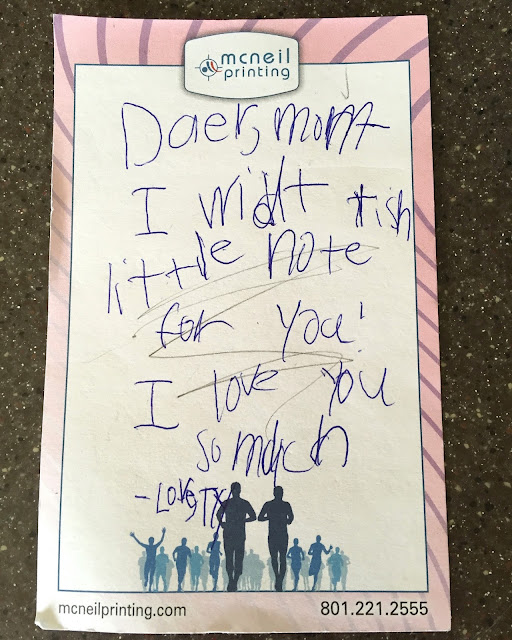 mcneil
printing
Daer, mom
I widht tish
little note
for you!
I love you
so mdych
- Love, Ty
mcneilprinting.com 801.221.2555